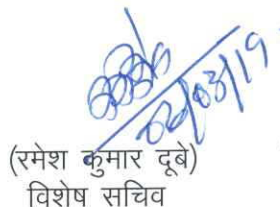 02/03/19
(रमेश कुमार दूबे)
विशेष सचिव